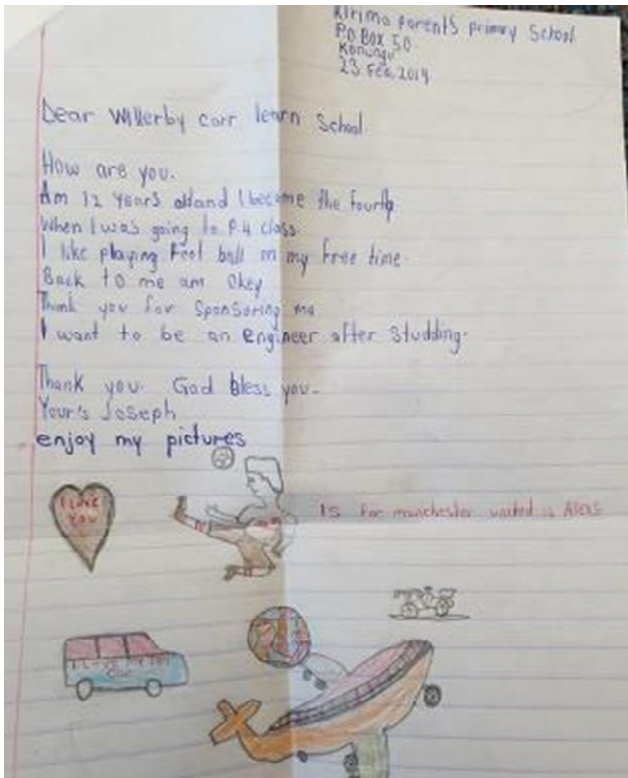 Kirima Parents primary School
P.O Box 50
Kanungu
23 Feb 2019
Dear Willerby carr learn School.
How are you.
Am 12 years old and I became the fourth
When I was going to P.4 class.
I like playing Foot ball in my free time.
Back to me am okey
Thank you for sponsoring me
I want to be an engineer after studding.
Thank you. God bless you.
Your's Joseph
enjoy my pictures
I LOVE
YOU
Is for manchester united is Alexs
I Love
Car